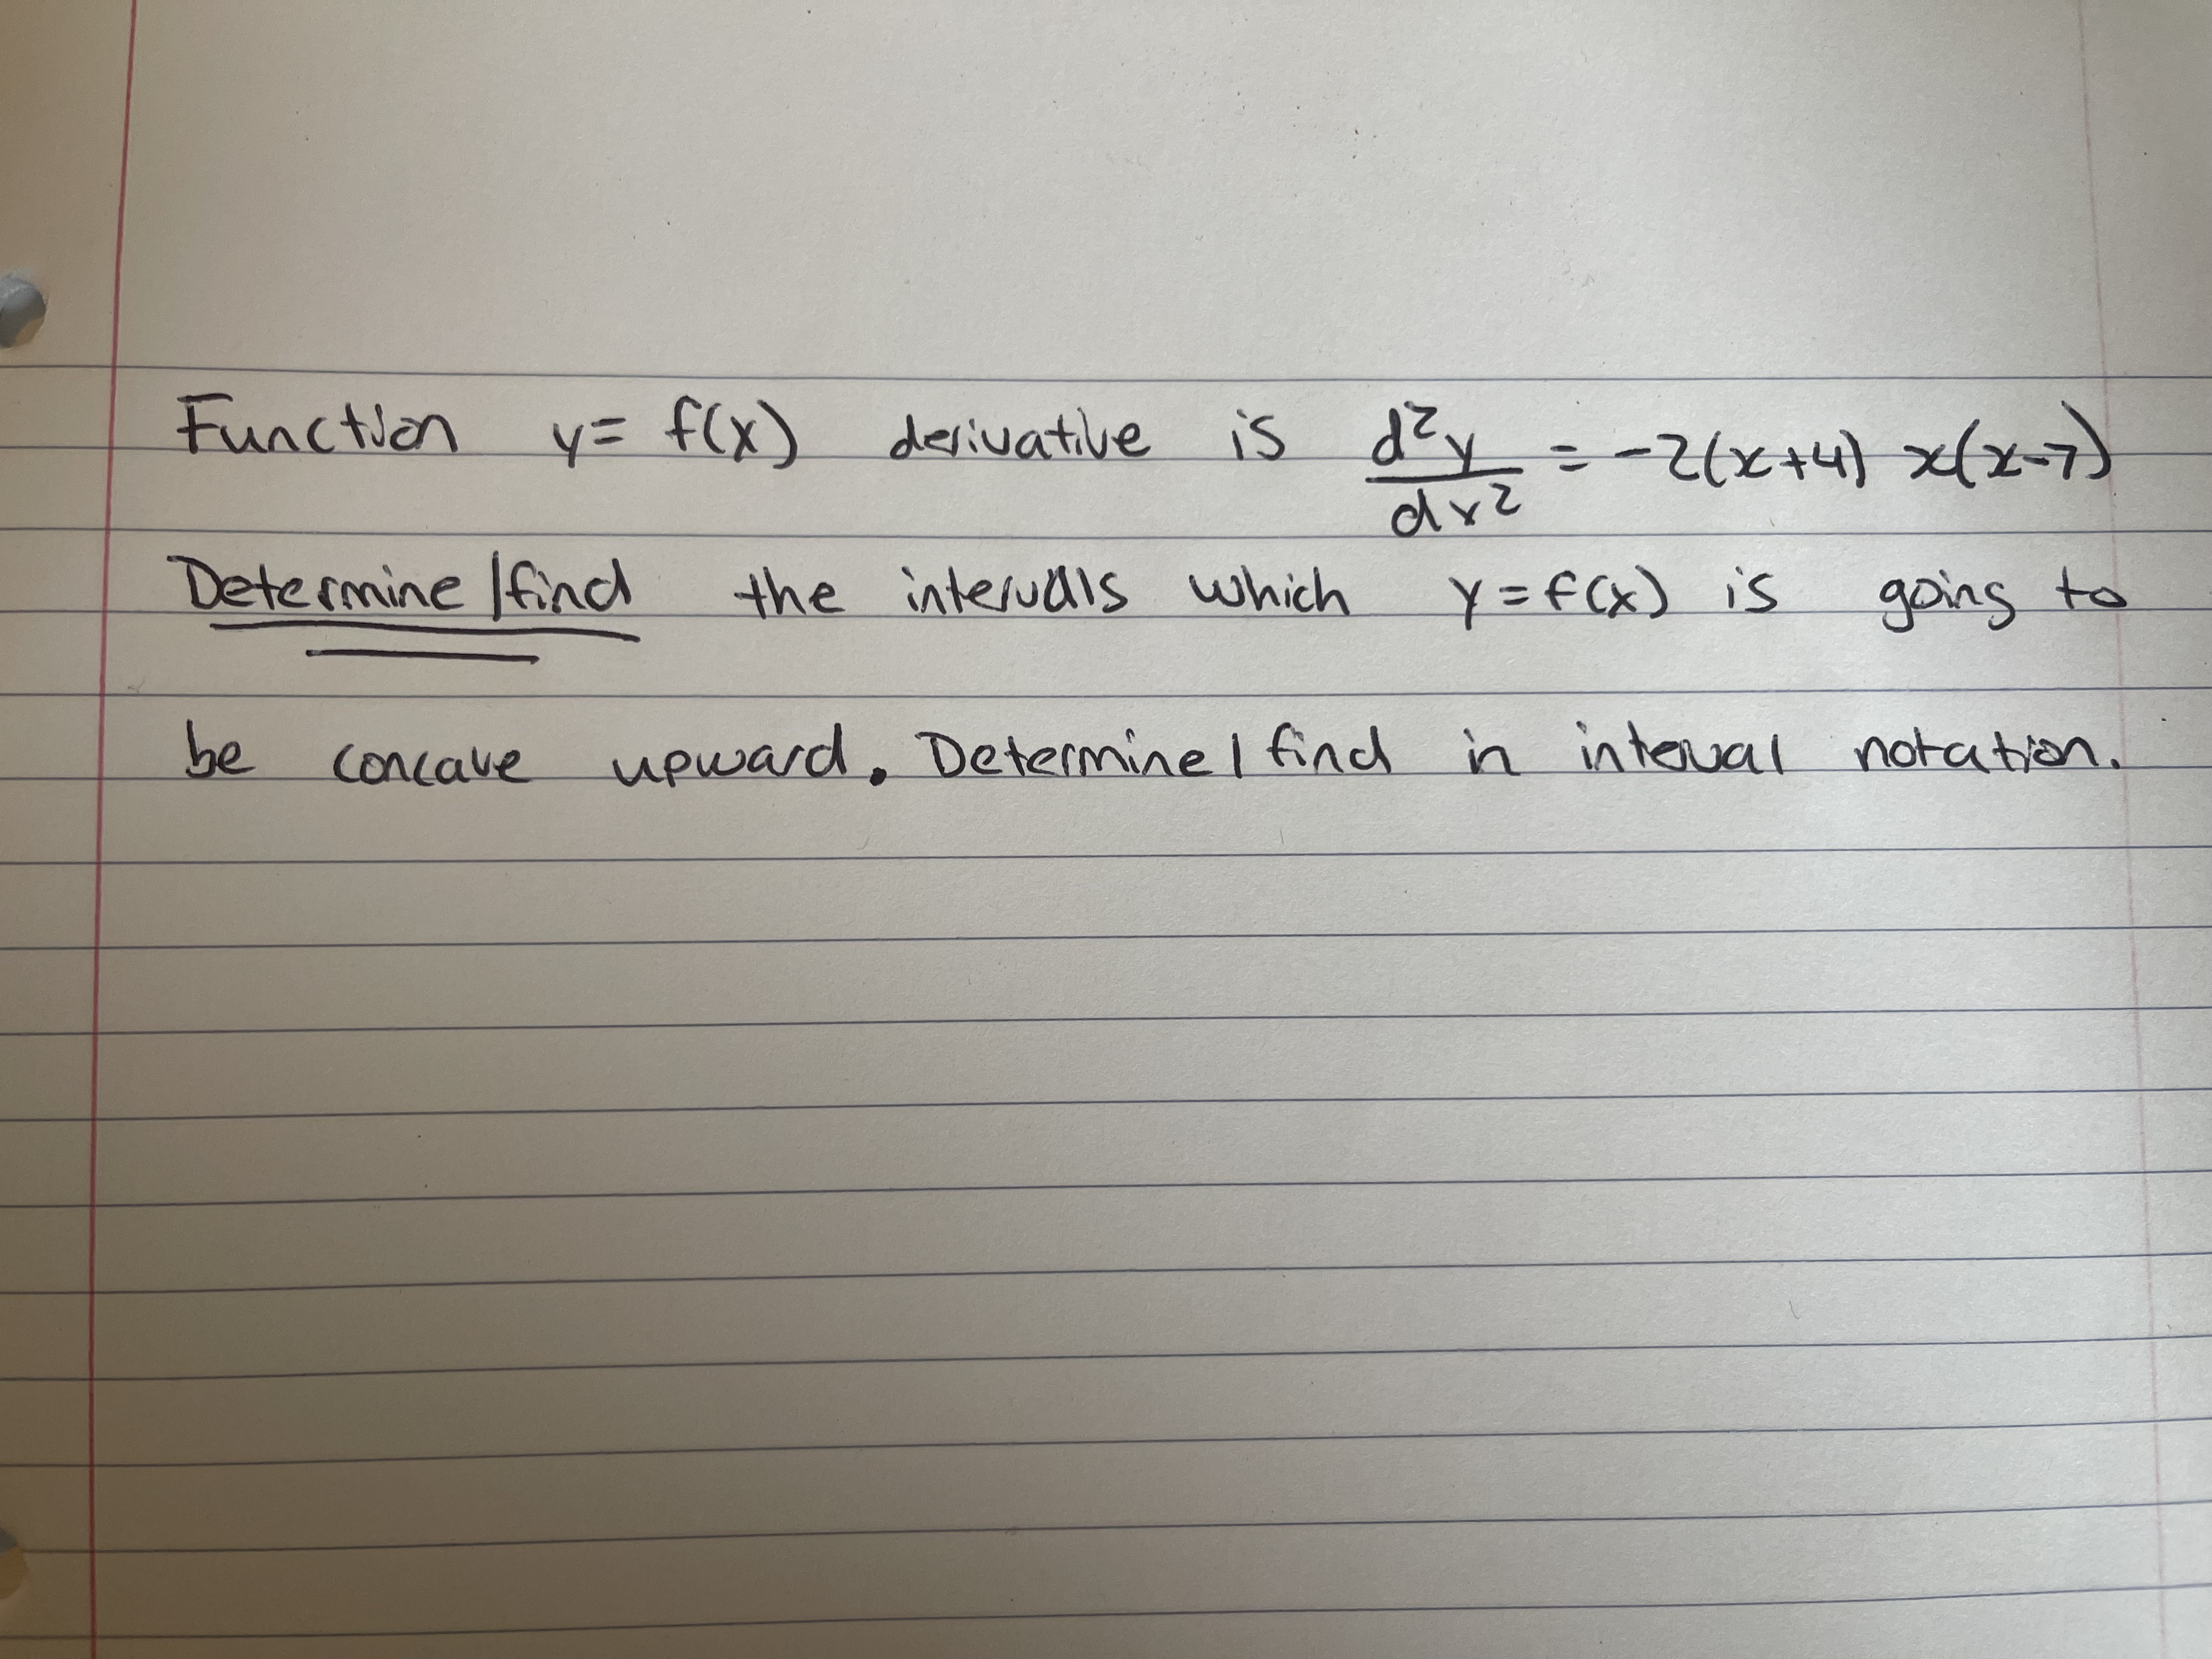 Function y= f(x) derivative is d²y/dx² = -2(x+4) x(x-7)
Determine/find the intervals which y=f(x) is going to
be concave upward. Determine/find in interval notation.